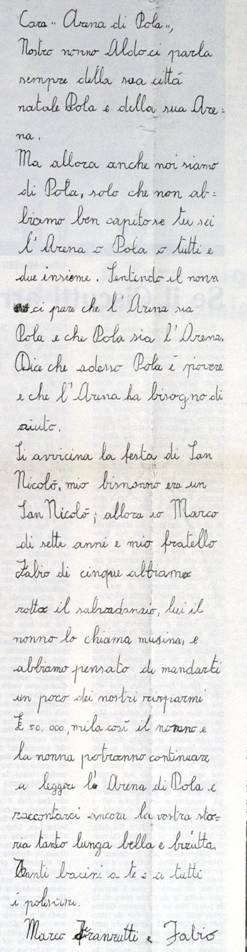 Cara "Arena di Pola",
Nostro nonno Aldo ci parla
sempre della sua città
natale Pola e della sua Are=
na.
Ma allora anche noi siamo
di Pola, solo che non ab=
biamo ben capito se tu sei
l'Arena o Pola o tutti e
due insieme. Sentendo il nonn
ci pare che l'Arena sia
Pola e che Pola sia l'Arena.
Dice che adesso Pola è povera
e che l'Arena ha bisogno di
aiuto.
Si avvicina la festa di San
Nicolò, mio bisnonno era un
San Nicolò; allora io Marco
di sette anni e mio fratello
Fabio di cinque abbiamo
rotto il salvadanaio, lui il
nonno lo chiama musina, e
abbiamo pensato di mandarti
un poco dei nostri risparmi
£ 50.000, mila così il nonno e
la nonna potranno continuare
a leggere l'Arena di Pola e
raccontarci ancora la vostra sto=
ria tanto lunga bella e brutta.
Tanti bacini a te e a tutti
i polesani.
Marco Franzutti e Fabio